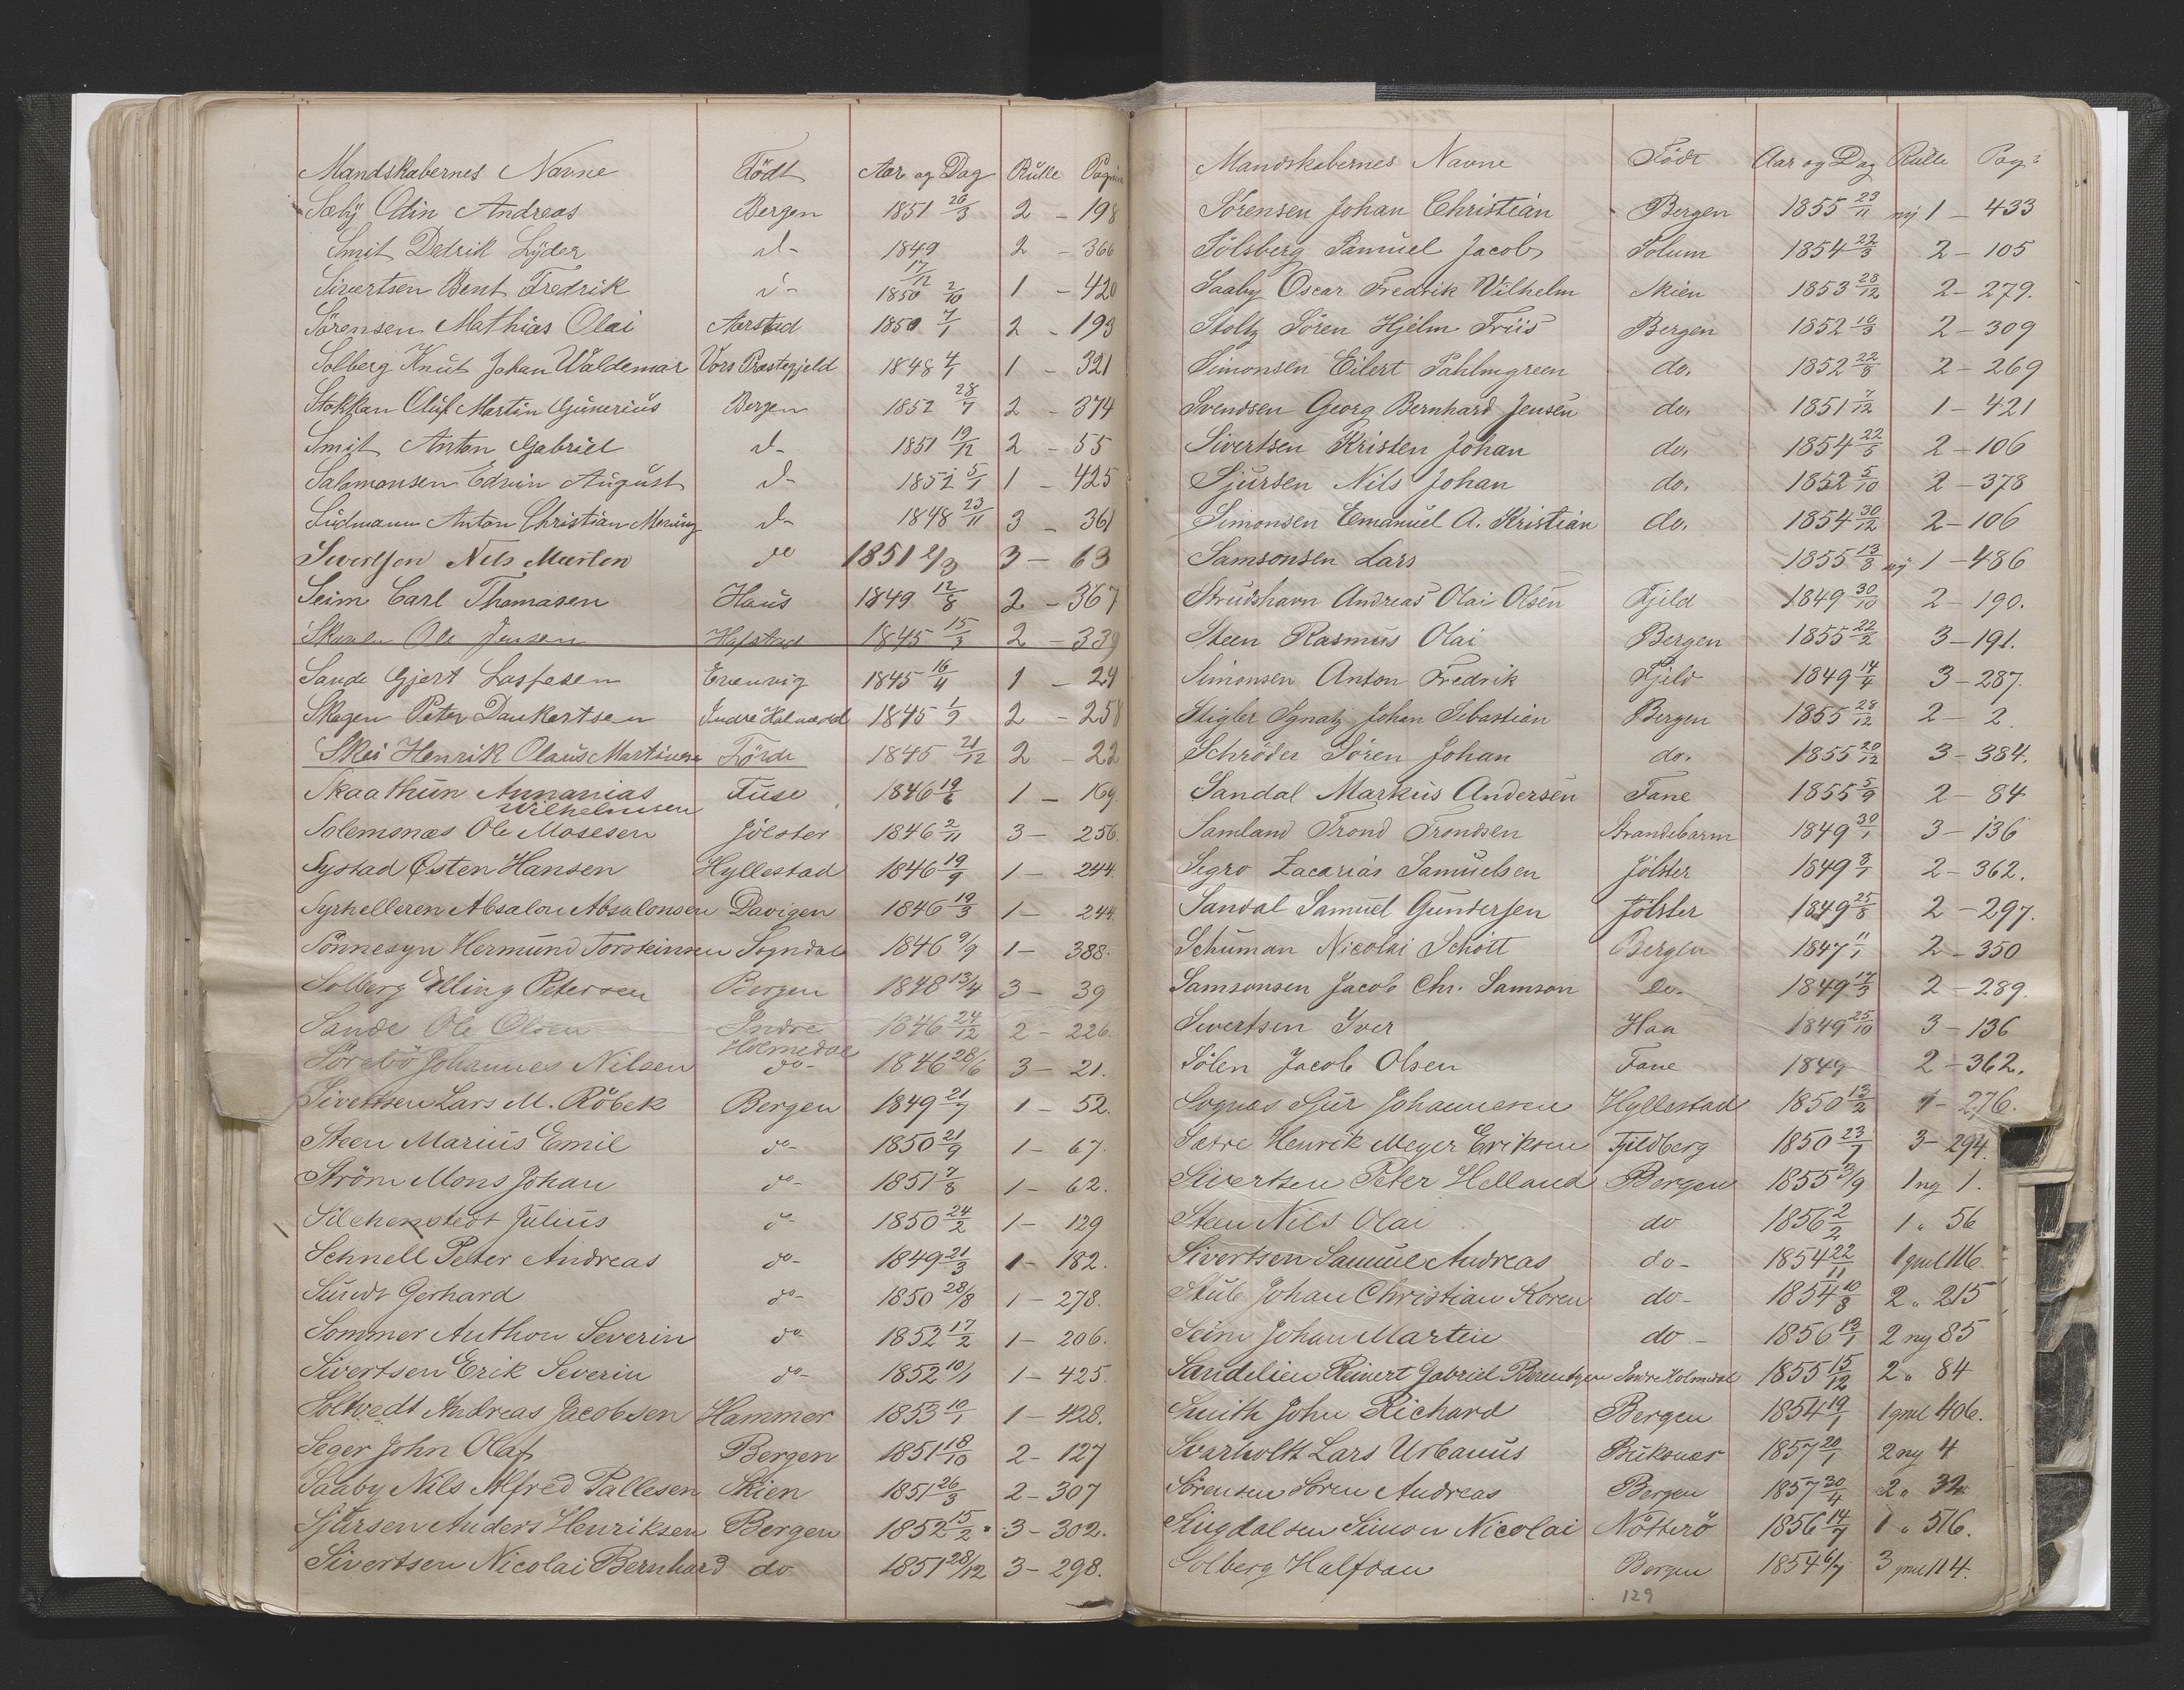 Mandskabernes Navne Födt Aar og Dag Rulle Pagina
Sæby Odin Andreas Bergen 1851 26/3 2 - 198
Smit Dedrik Lyder d- 1849 17/12 2 - 366
Sivertsen Bent Fredrik d- 1850 2/10 1 - 420
Sörensen Mathias Olai Aarstad 1850 7/1 2 - 193
Solberg Knut Johan Waldemar Vors Præstegjeld 1848 4/1 1 - 321
Stokkan Oluf Martin Gunerius Bergen 1852 28/7 2 - 374
Smit Anton Gabriel d- 1851 19/12 2 - 55
Salamonsen Edvin August d- 1852 5/1 1 - 425
Sudmann Anton Christian d- 1848 23/11 3 - 361
Sivertsen Nels Morten do 1851 2/3 3 - 63
Seim Carl Thomasen Haus 1849 12/8 2 - 367
Ole Jensen Hafstad 1845 15/3 2 - 339
Sande Gjert Lassesen Evenvig 1845 16/4 1 - 24
Skagen Peter Dankertsen Indre Holmedal 1845 1/9 2 - 258
Skei Henrik Olaus Martinsen Förde 1845 21/12 2 - 22
Skaathun Annanias Wilhelmsen Fuse 1846 19/6 1 - 169.
Solemsnæs Ole Mosesen Jölster 1846 2/11 3 - 256.
Systad Østen Hansen Hyllestad 1846 19/9 1 - 244.
Syrhelleren Absalon Absalonsen Davigen 1846 19/3 1 - 244.
Sönnesyn Hermund Torsteinsen Sogndal 1846 9/9 1 - 388.
Solberg Elling Petersen Bergen 1848 13/4 3 - 39
Sande Ole Olsen Indre Holmedal 1846 24/12 2 - 226.
Sörebö Johannes Nilsen do- 1846 28/6 3 - 21.
Sivertsen Lars M. Röbek Bergen 1849 21/7 1 - 52.
Steen Marius Emil do- 1850 21/9 1 - 67.
Ström Mons Johan do- 1851 7/8 1 - 62.
Silchenstedt Julius do- 1850 24/2 1 - 129
Schnell Peter Andreas do- 1849 21/3 1 - 182.
Sundt Gerhard do- 1850 28/8 1 - 278.
Sommer Anthon Severin do- 1852 17/2 1 - 206.
Sivertsen Erik Severin do- 1852 10/1 1 - 425.
Soltvedt Andreas Jacobsen Hammer 1853 10/1 1 - 428.
Seger John Olaf Bergen 1851 18/10 2 - 127
Saaby Nils Alfred Pallesen Skien 1851 26/3 2 - 307
Sjursen Anders Henriksen Bergen 1852 15/2 3 - 302.
Sivertsen Nicolai Bernhard do 1851 28/12 3 - 298.
Mandskabernes Navne Födt Aar og Dag Rulle Pag:
Sörensen Johan Christian Bergen 1855 23/11 ny 1 - 433
Sölsberg Samuel Jacob Solum 1854 22/3 2 - 105
Saaby Oscar Fredrik Vilhelm Skien 1853 28/12 2 - 279.
Stoltz Sören Hjelm Friis Bergen 1852 10/3 2 - 309
Simonsen Eilert Pahlmgreen do. 1852 22/8 2 - 269
Svendsen Georg Bernhard Jensen do. 1851 7/12 1 - 421
Sivertsen Kristen Johan do. 1854 22/5 2 - 106
Sjursen Nils Johan do. 1852 5/10 2 - 378
Simonsen Emanuel A. Kristian do. 1854 30/12 2 - 106
Samsonsen Lars 1855 13/8 ny 1 - 486
Strudshavn Andreas Olai Olsen Fjeld 1849 30/10 2 - 190.
Steen Rasmus Olai Bergen 1855 22/2 3 - 191.
Simonsen Anton Fredrik Fjeld 1849 14/4 3 - 287.
Stigler Ignatz Johan Sebastian Bergen 1855 28/12 2 - 2.
Schröder Sören Johan do. 1855 20/12 3 - 384.
Sandal Markus Andersen Fane 1855 5/9 2 - 84
Samland Trond Trondsen Strandebarm 1849 30/1 3 - 136
Segro Zacarias Samuelsen Jölster 1849 8/1 2 - 362.
Sandal Samuel Gundersen Jölster 1849 25/8 2 - 297.
Schuman Nicolai Schött Bergen 1847 11/1 2 - 350
Samsonsen Jacob Chr. Samson Do. 1849 17/3 2 - 289.
Sivertsen Iver Haa 1849 25/10 3 - 136
Sölen Jacob Olsen Fane 1849 2 - 362.
Sognæs Sjur Johannesen Hyllestad 1850 13/2 1 - 276.
Sætre Henrik Meyer Eriksen Fjeldberg 1850 23/7 3 - 294.
Sivertsen Peter Helland Bergen 1855 3/9 1 ny 1.
Steen Nils Olai do 1856 2/2 1 " 56
Sivertsen Samuel Andreas do- 1854 22/11 1 gml 116.
Stub Johan Christian Koren do- 1854 10/8 2 " 215
Seim Johan Martin do- 1856 13/1 2 ny 85
Sandelien Reinert Gabriel Berentsen Indre Holmedal 1855 15/12 2 " 84
Smith John Richard Bergen 1854 19/1 1 gml 406.
Svarholth Lars Urbanus Buksnæs 1857 20/1 2 ny 4
Sörensen Sören Andreas Bergen 1857 30/4 2 " 32
Singdalsen Simon Nicolai Nötterö 1856 14/7 1 " 516.
Solberg Halfdan Bergen 1854 6/7 3 gml 114.
129